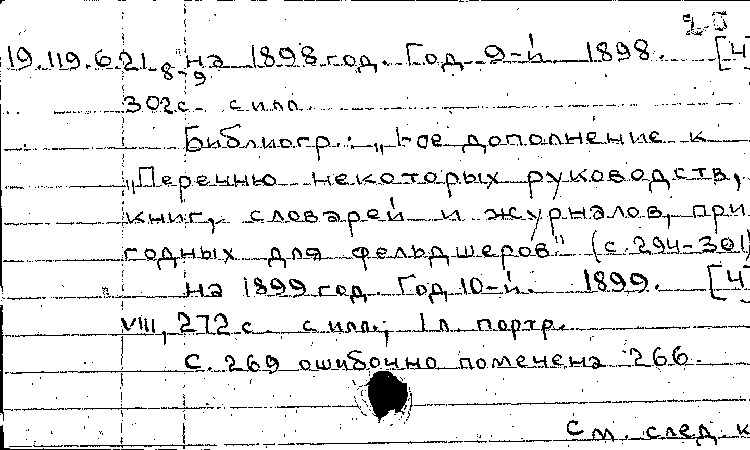 25
19.119.6.21 8-9 на 1898 год. Год 9-й. 1898. [4
302 с. с илл.
Библиогр.: „1-ое дополнение к
„Перечню некоторых руководств,
книг, словарей и журналов, при
годных для фельдшеров" (с. 294-301)
на 1899 год. Год 10-й. 1899. [4
VIII, 272 с. с илл.; 1 л. портр.
С. 269 ошибочно помечена 266.
См. след. к